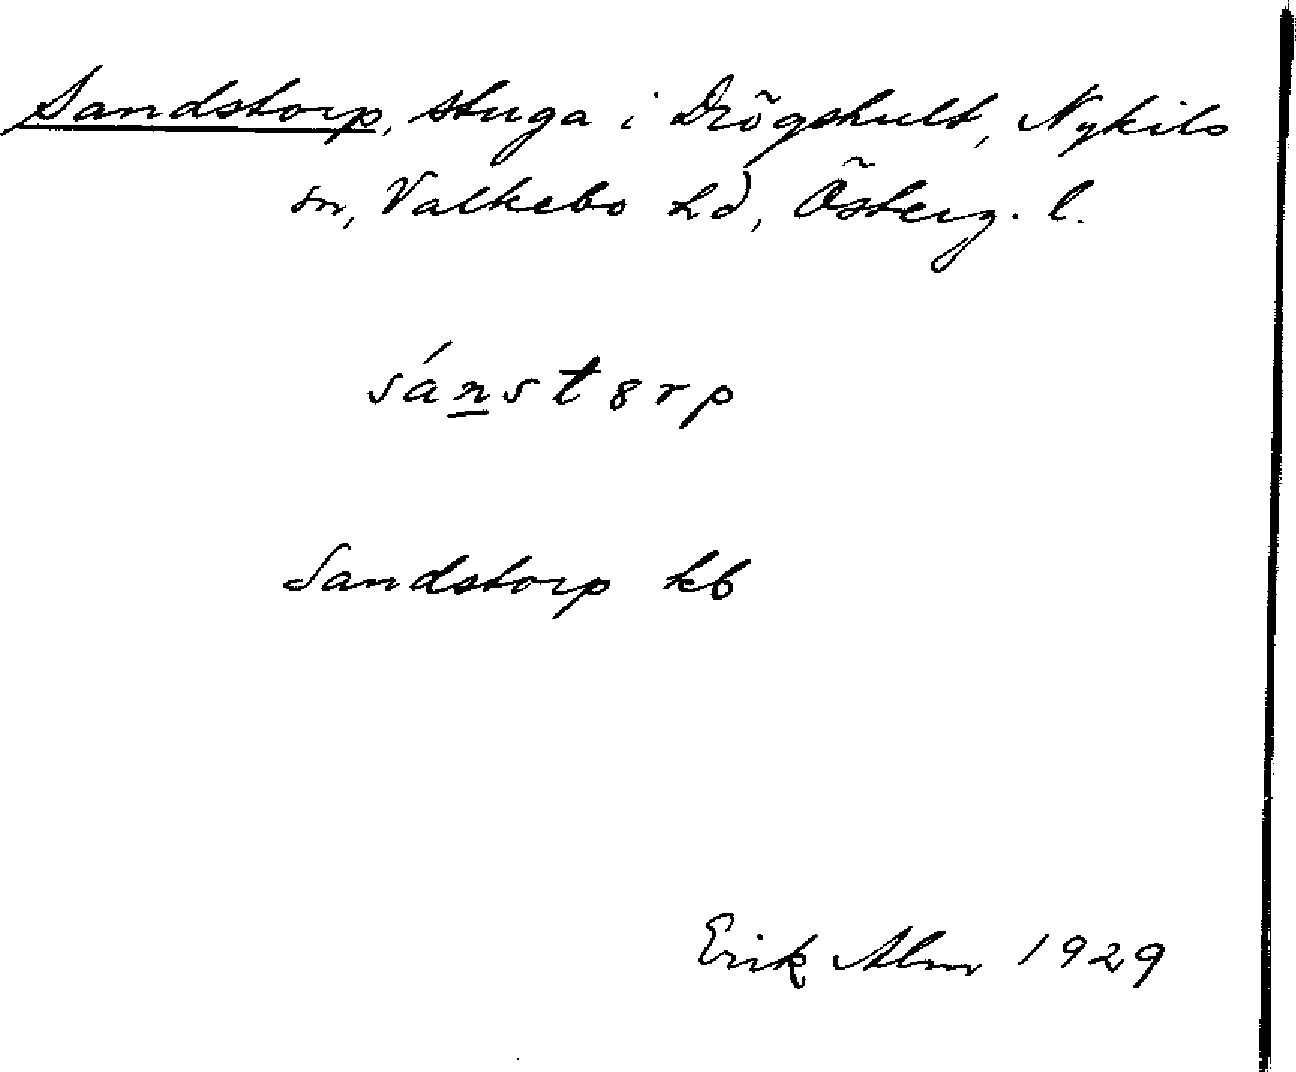 Sandstorp, stuga i Drögshult, Nykils
sn, Valkebo hd, Österg. l.
sánst8rp
Sandstorp kb
Erik Alm 1929